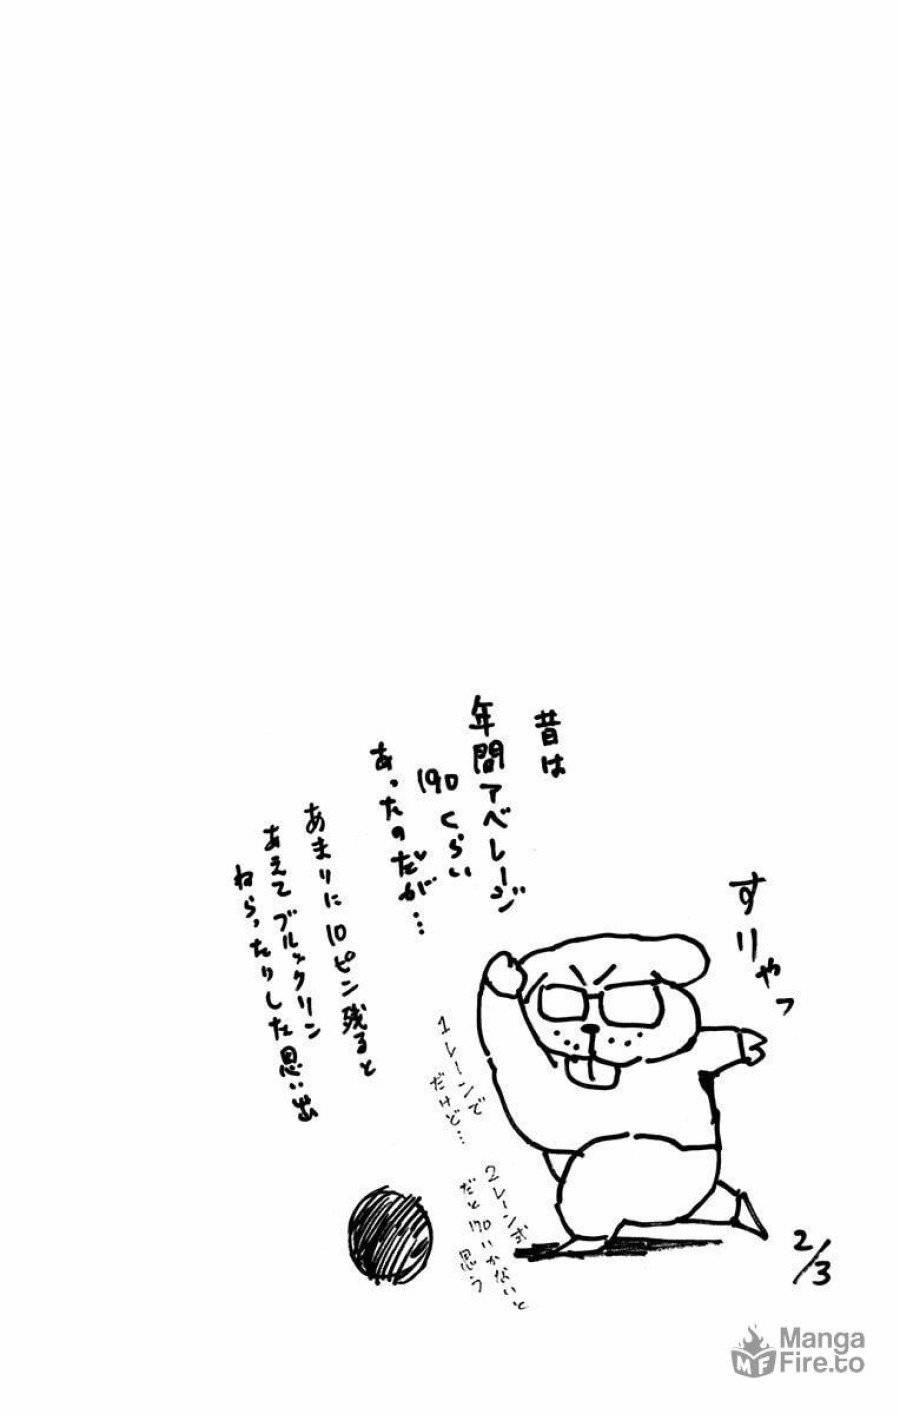 昔は
年間アベレージ
190くらい
あったのだが…
あまりに10ピン残ると
あえてブルックリン
ねらったりした思い出
すりゃっ
1レーンで
だけど…
2レーン式
だと170いかないと
思う
2/3
Manga
Fire.to
MF